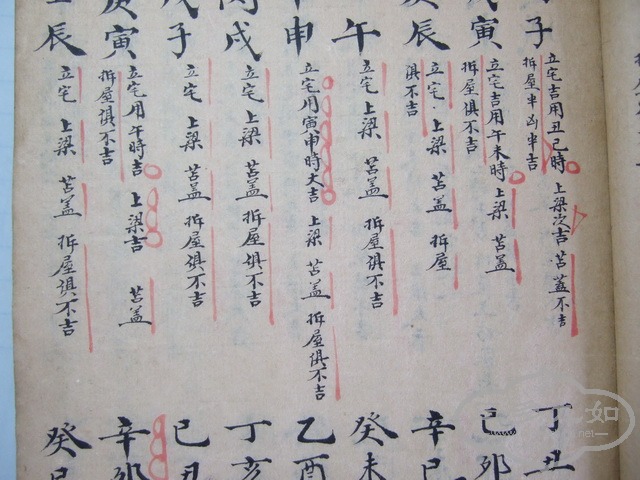 子 立宅吉用丑巳時 上梁次吉 苫蓋不吉
拆屋半凶半吉
寅 立宅吉用午未時 上梁 苫蓋
拆屋俱不吉
辰 立宅 上梁 苫蓋 拆屋
俱不吉
午 立宅 上梁 苫蓋 拆屋俱不吉
申 立宅用寅申時大吉 上梁 苫蓋 拆屋俱不吉
戌 立宅 上梁 苫蓋 拆屋俱不吉
子 立宅 上梁 苫蓋 拆屋俱不吉
寅 立宅用午時吉 上梁吉 苫蓋
拆屋俱不吉
辰 立宅 上梁 苫蓋 拆屋俱不吉
丁丑
己卯
辛巳
癸未
乙酉
丁亥
己丑
辛卯
癸巳